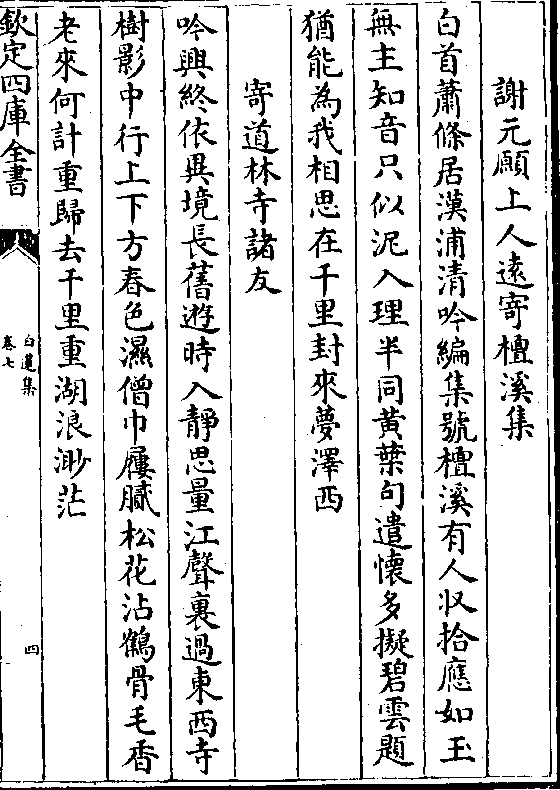 謝元願上人遠寄檀溪集
白首蕭條居漢浦清吟編集號檀溪有人收拾應如玉
無主知音只似泥入理半同黃葉句遣懷多擬碧雲題
猶能為我相思在千里封來夢澤西
寄道林寺諸友
吟興終依異境長舊遊時入靜思量江聲裏過東西寺
樹影中行上下方春色濕僧巾屨膩松花沾鶴骨毛香
老來何計重歸去千里重湖浪渺茫
欽定四庫全書
白蓮集
卷七
四